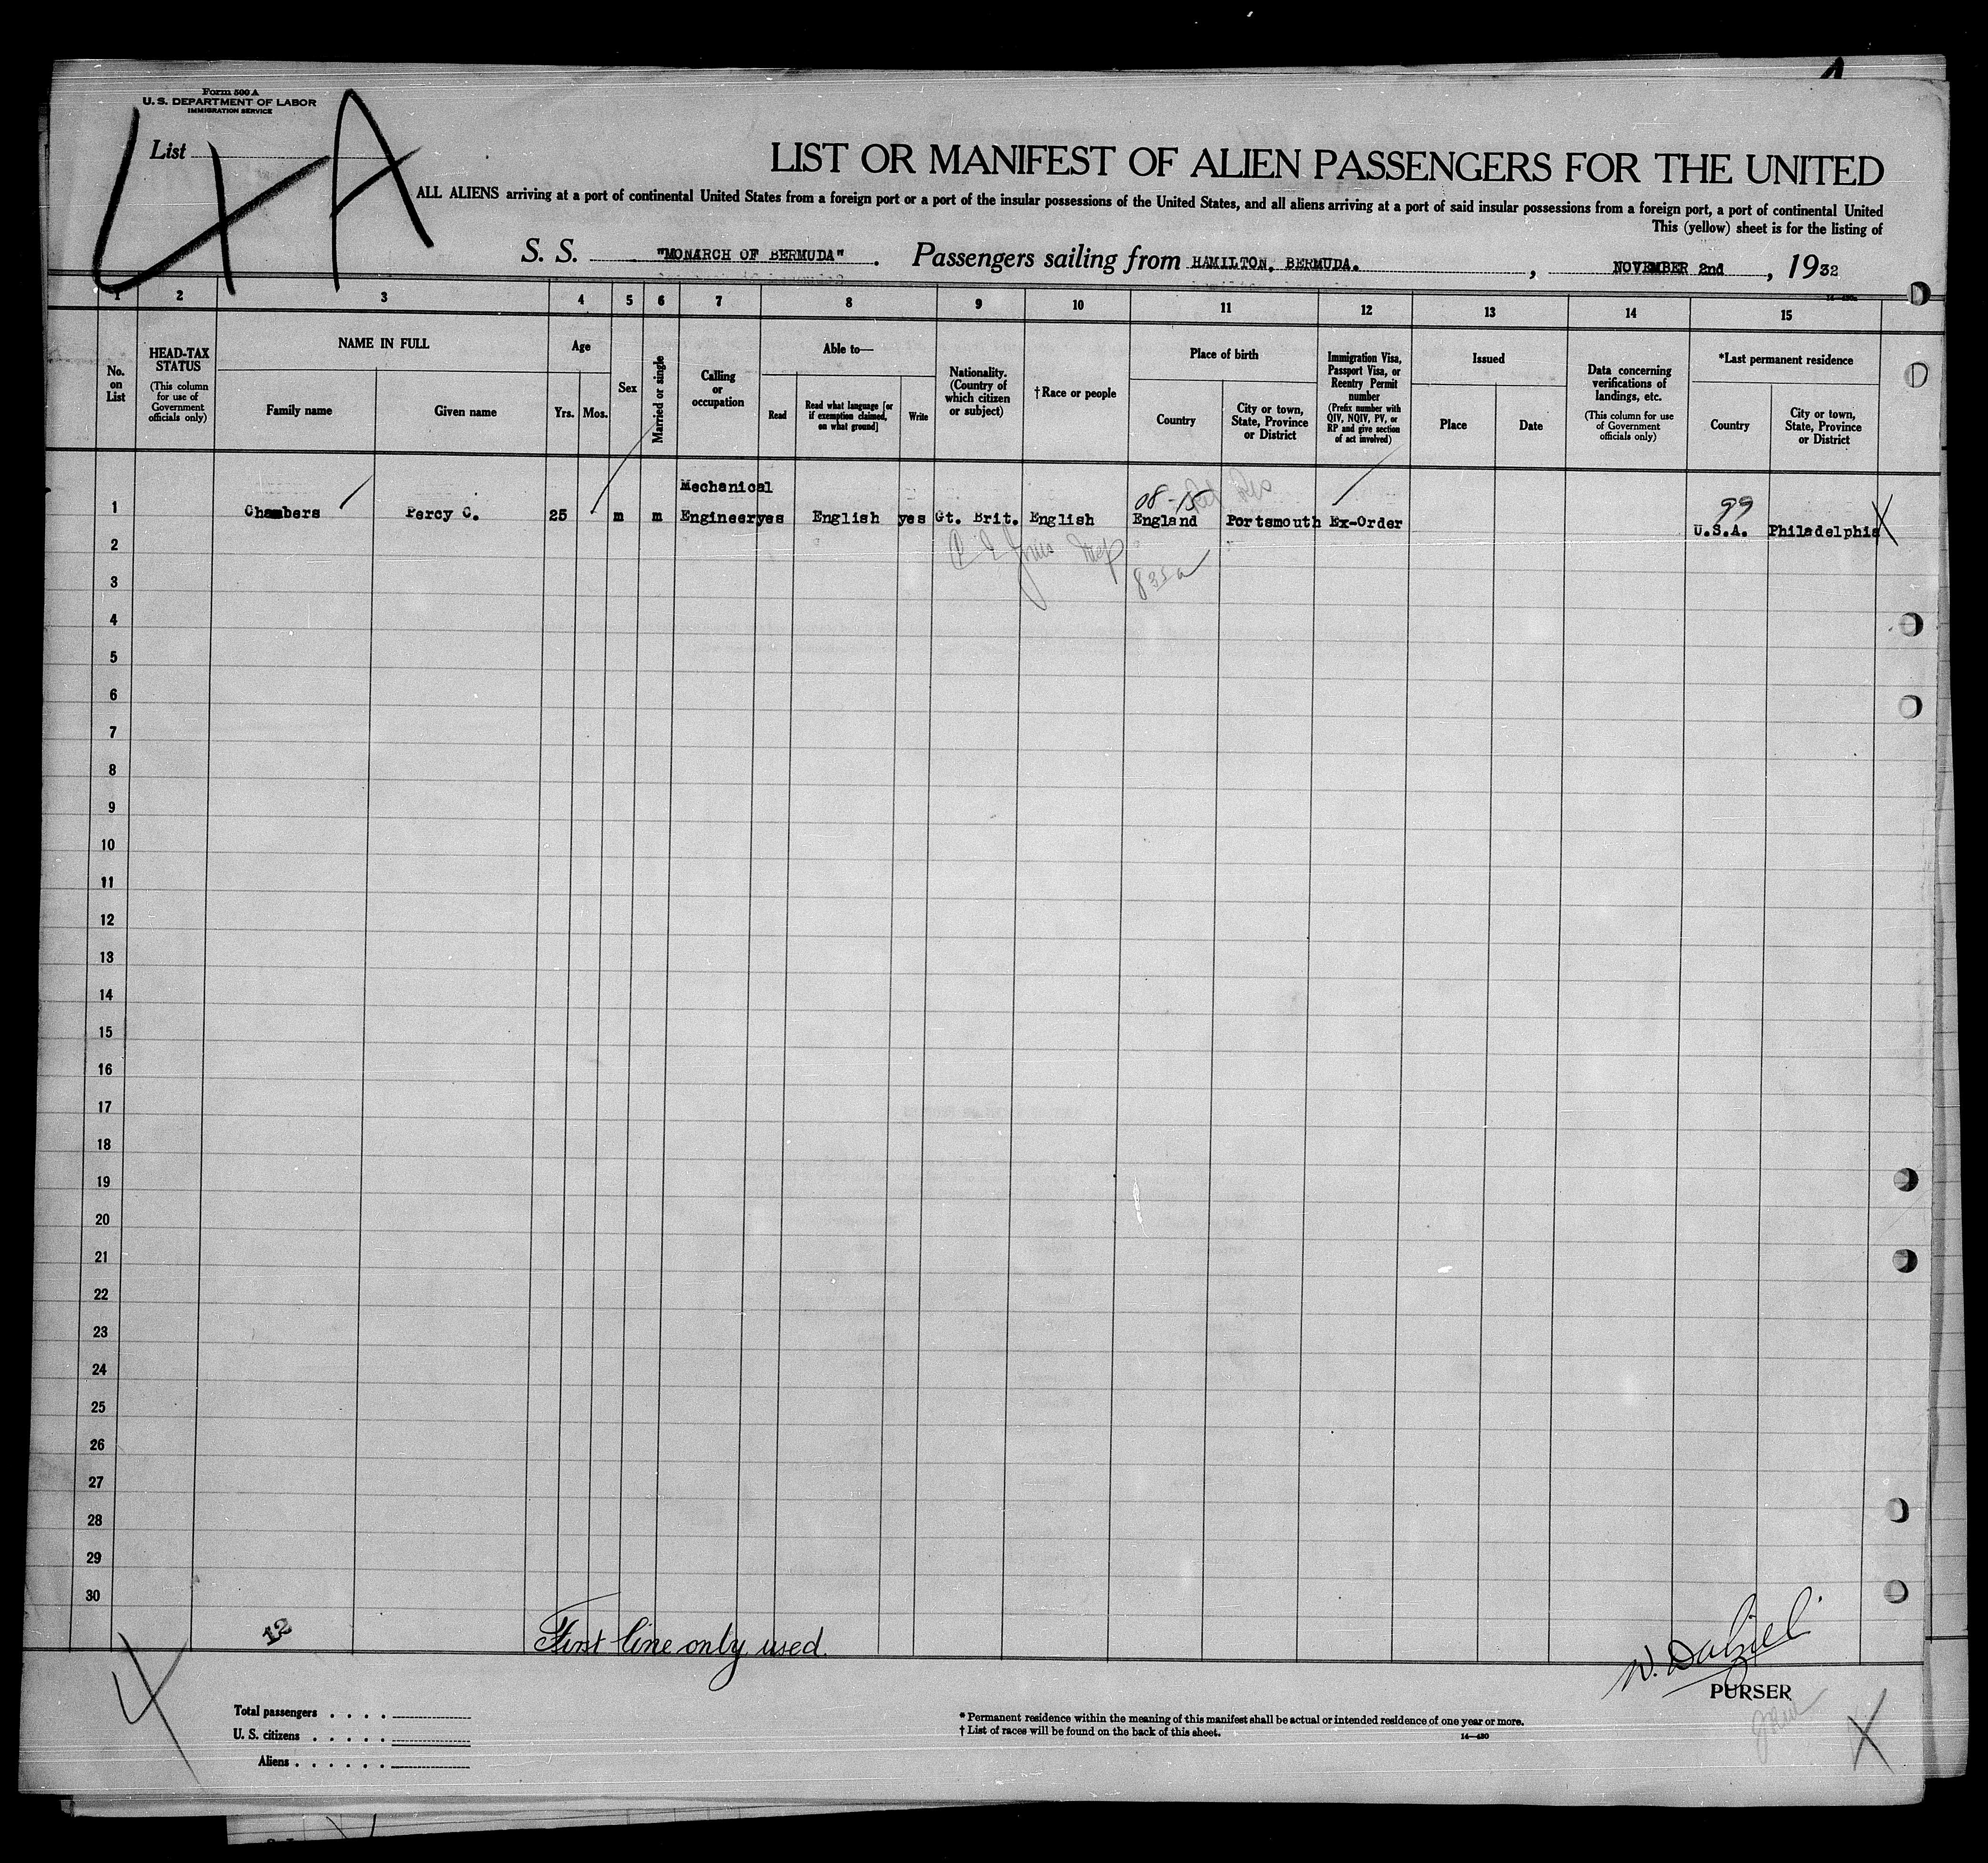 Form 500 A
U. S. DEPARTMENT OF LABOR
IMMIGRATION SERVICE
List
4A
LIST OR MANIFEST OF ALIEN PASSENGERS FOR THE UNITED
ALL ALIENS arriving at a port of continental United States from a foreign port or a port of the insular possessions of the United States, and all aliens arriving at a port of said insular possessions from a foreign port, a port of continental United
This (yellow) sheet is for the listing of
S. S. "MONARCH OF BERMUDA". Passengers sailing from HAMILTON, BERMUDA. , NOVEMBER 2nd , 1932
1 2 3 4 5 6 7 8 9 10 11 12 13 14 15
No. on List
HEAD-TAX STATUS
(This column for use of Government officials only)
NAME IN FULL
Family name
Given name
Age
Yrs.
Mos.
Sex
Married or single
Calling or occupation
Able to—
Read
Read what language [or if exemption claimed, on what ground]
Write
Nationality. (Country of which citizen or subject)
† Race or people
Place of birth
Country
City or town, State, Province or District
Immigration Visa, Passport Visa, or Reentry Permit number
(Prefix number with QIV, NQIV, PV, or RP and give section of act involved)
Issued
Place
Date
Data concerning verifications of landings, etc.
(This column for use of Government officials only)
*Last permanent residence
Country
City or town, State, Province or District
08-15
99
1 Chambers Percy C. 25 m m Mechanical Engineer yes English yes Gt. Brit. English England Portsmouth Ex-Order U.S.A. Philadelphia X
2
3
835a
4
5
6
7
8
9
10
11
12
13
14
15
16
17
18
19
20
21
22
23
24
25
26
27
28
29
30
12
First line only used.
W. Dalziel
PURSER
Total passengers . . . .
U. S. citizens . . . . .
Aliens . . . . . .
* Permanent residence within the meaning of this manifest shall be actual or intended residence of one year or more.
† List of races will be found on the back of this sheet.
14—430
X